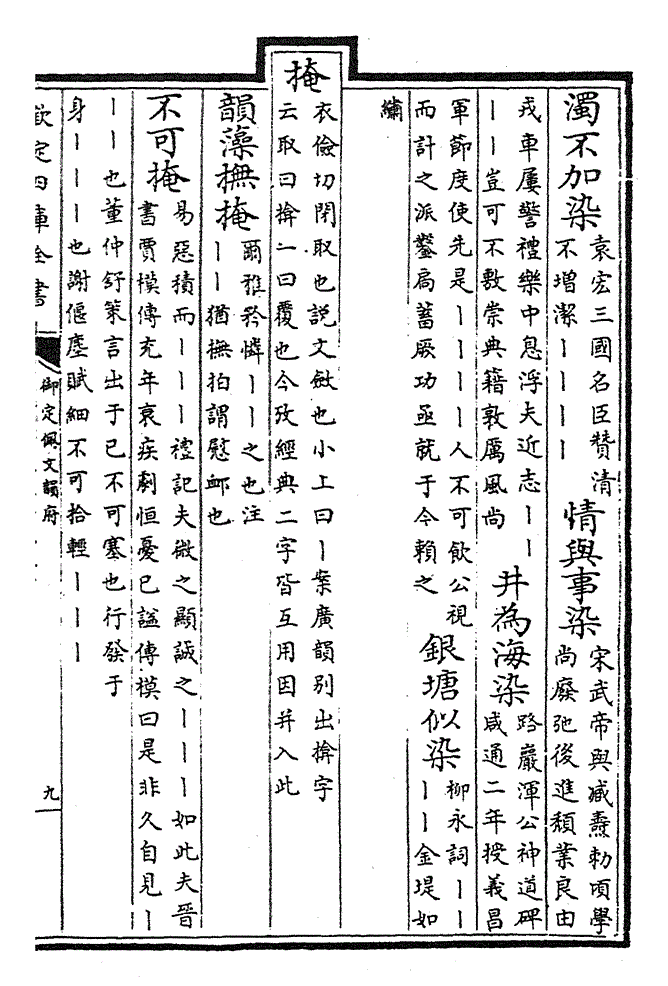 濁不加染
袁宏三國名臣贊清
不增潔丨丨丨丨
情與事染
宋武帝與臧燾勅頃學
尚廢弛後進頹業良由
戎車屢警禮樂中息浮夫近志丨丨
丨丨豈可不敷崇典籍敦厲風尚
井為海染
路巖渾公神道碑
咸通二年授義昌
軍節度使先是丨丨丨丨人不可飲公視
而計之派鑿扃蓄厥功亟就于今賴之
銀塘似染
柳永詞丨丨
丨丨金堤如
繡
掩
衣儉切閉取也説文斂也小上曰丨案廣韻別出揜字
云取曰揜一曰覆也今攷經典二字皆互用因并入此
韻藻撫掩
爾雅矜憐丨丨之也注
丨丨猶撫拍謂慰䘏也
不可掩
易惡積而丨丨丨禮記夫微之顯誠之丨丨丨如此夫晉
書賈模傳充年衰疾劇恒憂已諡傳模曰是非久自見丨
丨丨也董仲舒策言出于已不可塞也行發于
身丨丨丨也謝偃塵賦細不可拾輕丨丨丨
欽定四庫全書
御定佩文韻府
九